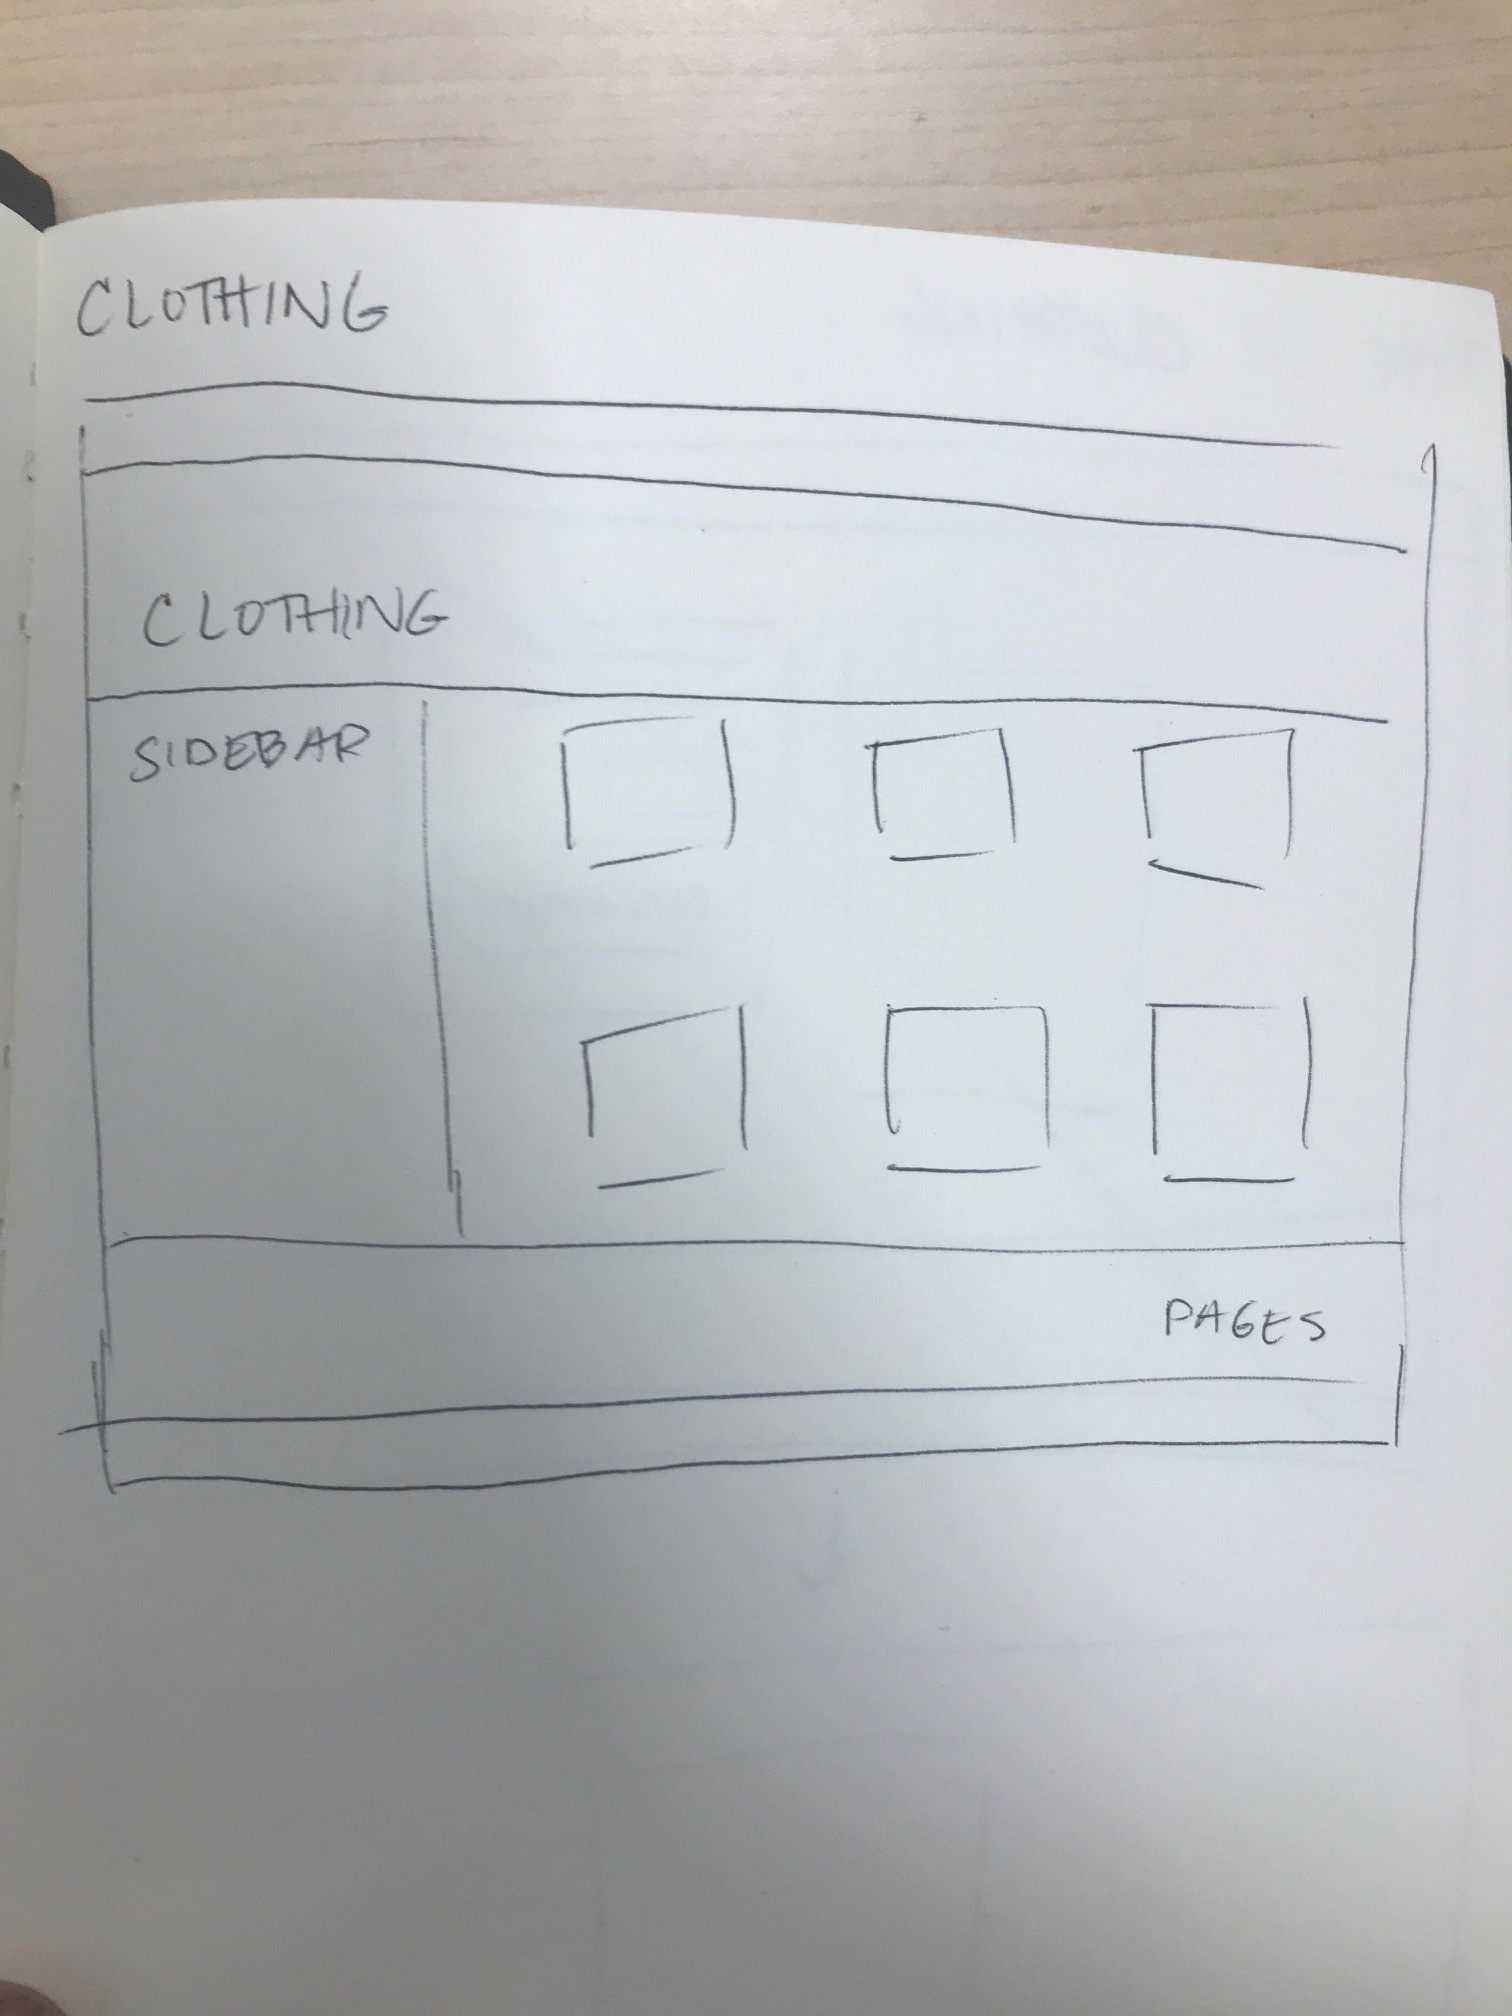 CLOTHING
CLOTHING
SIDEBAR
PAGES